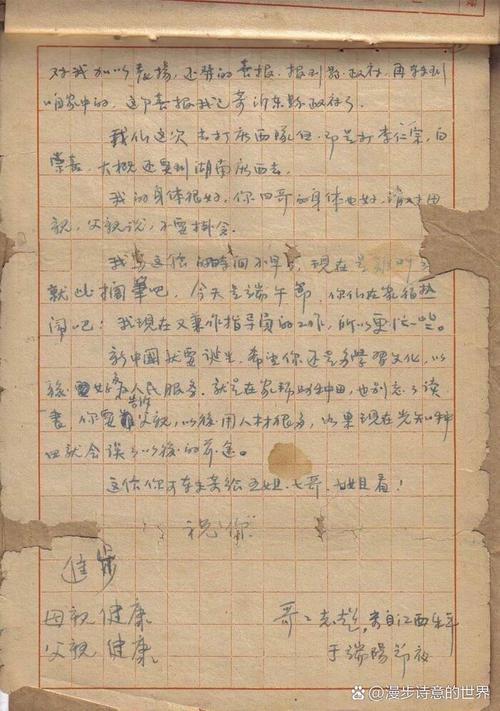 对我加以表扬，还带的喜报，报到县政府，再转到
咱家中的，这个喜报我已寄沂东县政府了。
我们这次去打广西队伍，即是打李仁宗，白
崇喜，大概还要到湖南广西去。
我的身体很好，你四哥的身体也好，请对母
亲，父亲说，不要掛念。
我写这信的时间不早了，现在是
就此搁筆吧，今天是端午节，你们在家很热
闹吧！我现在又兼作指导员的工作，所以更忙一些。
新中國就要诞生，希望你还是多学習文化，以
後好为人民服务，就是在家帮助种田，也别忘了读
書，你要告诉父亲，以後用人材很多，如果现在光知种
田就会误了以後的前途。
这信你可在来给五姐、七哥、七姐看！
祝你
進步
母親健康
父親健康
哥哥志超，寄自江西
于端陽节夜
@漫步诗意的世界